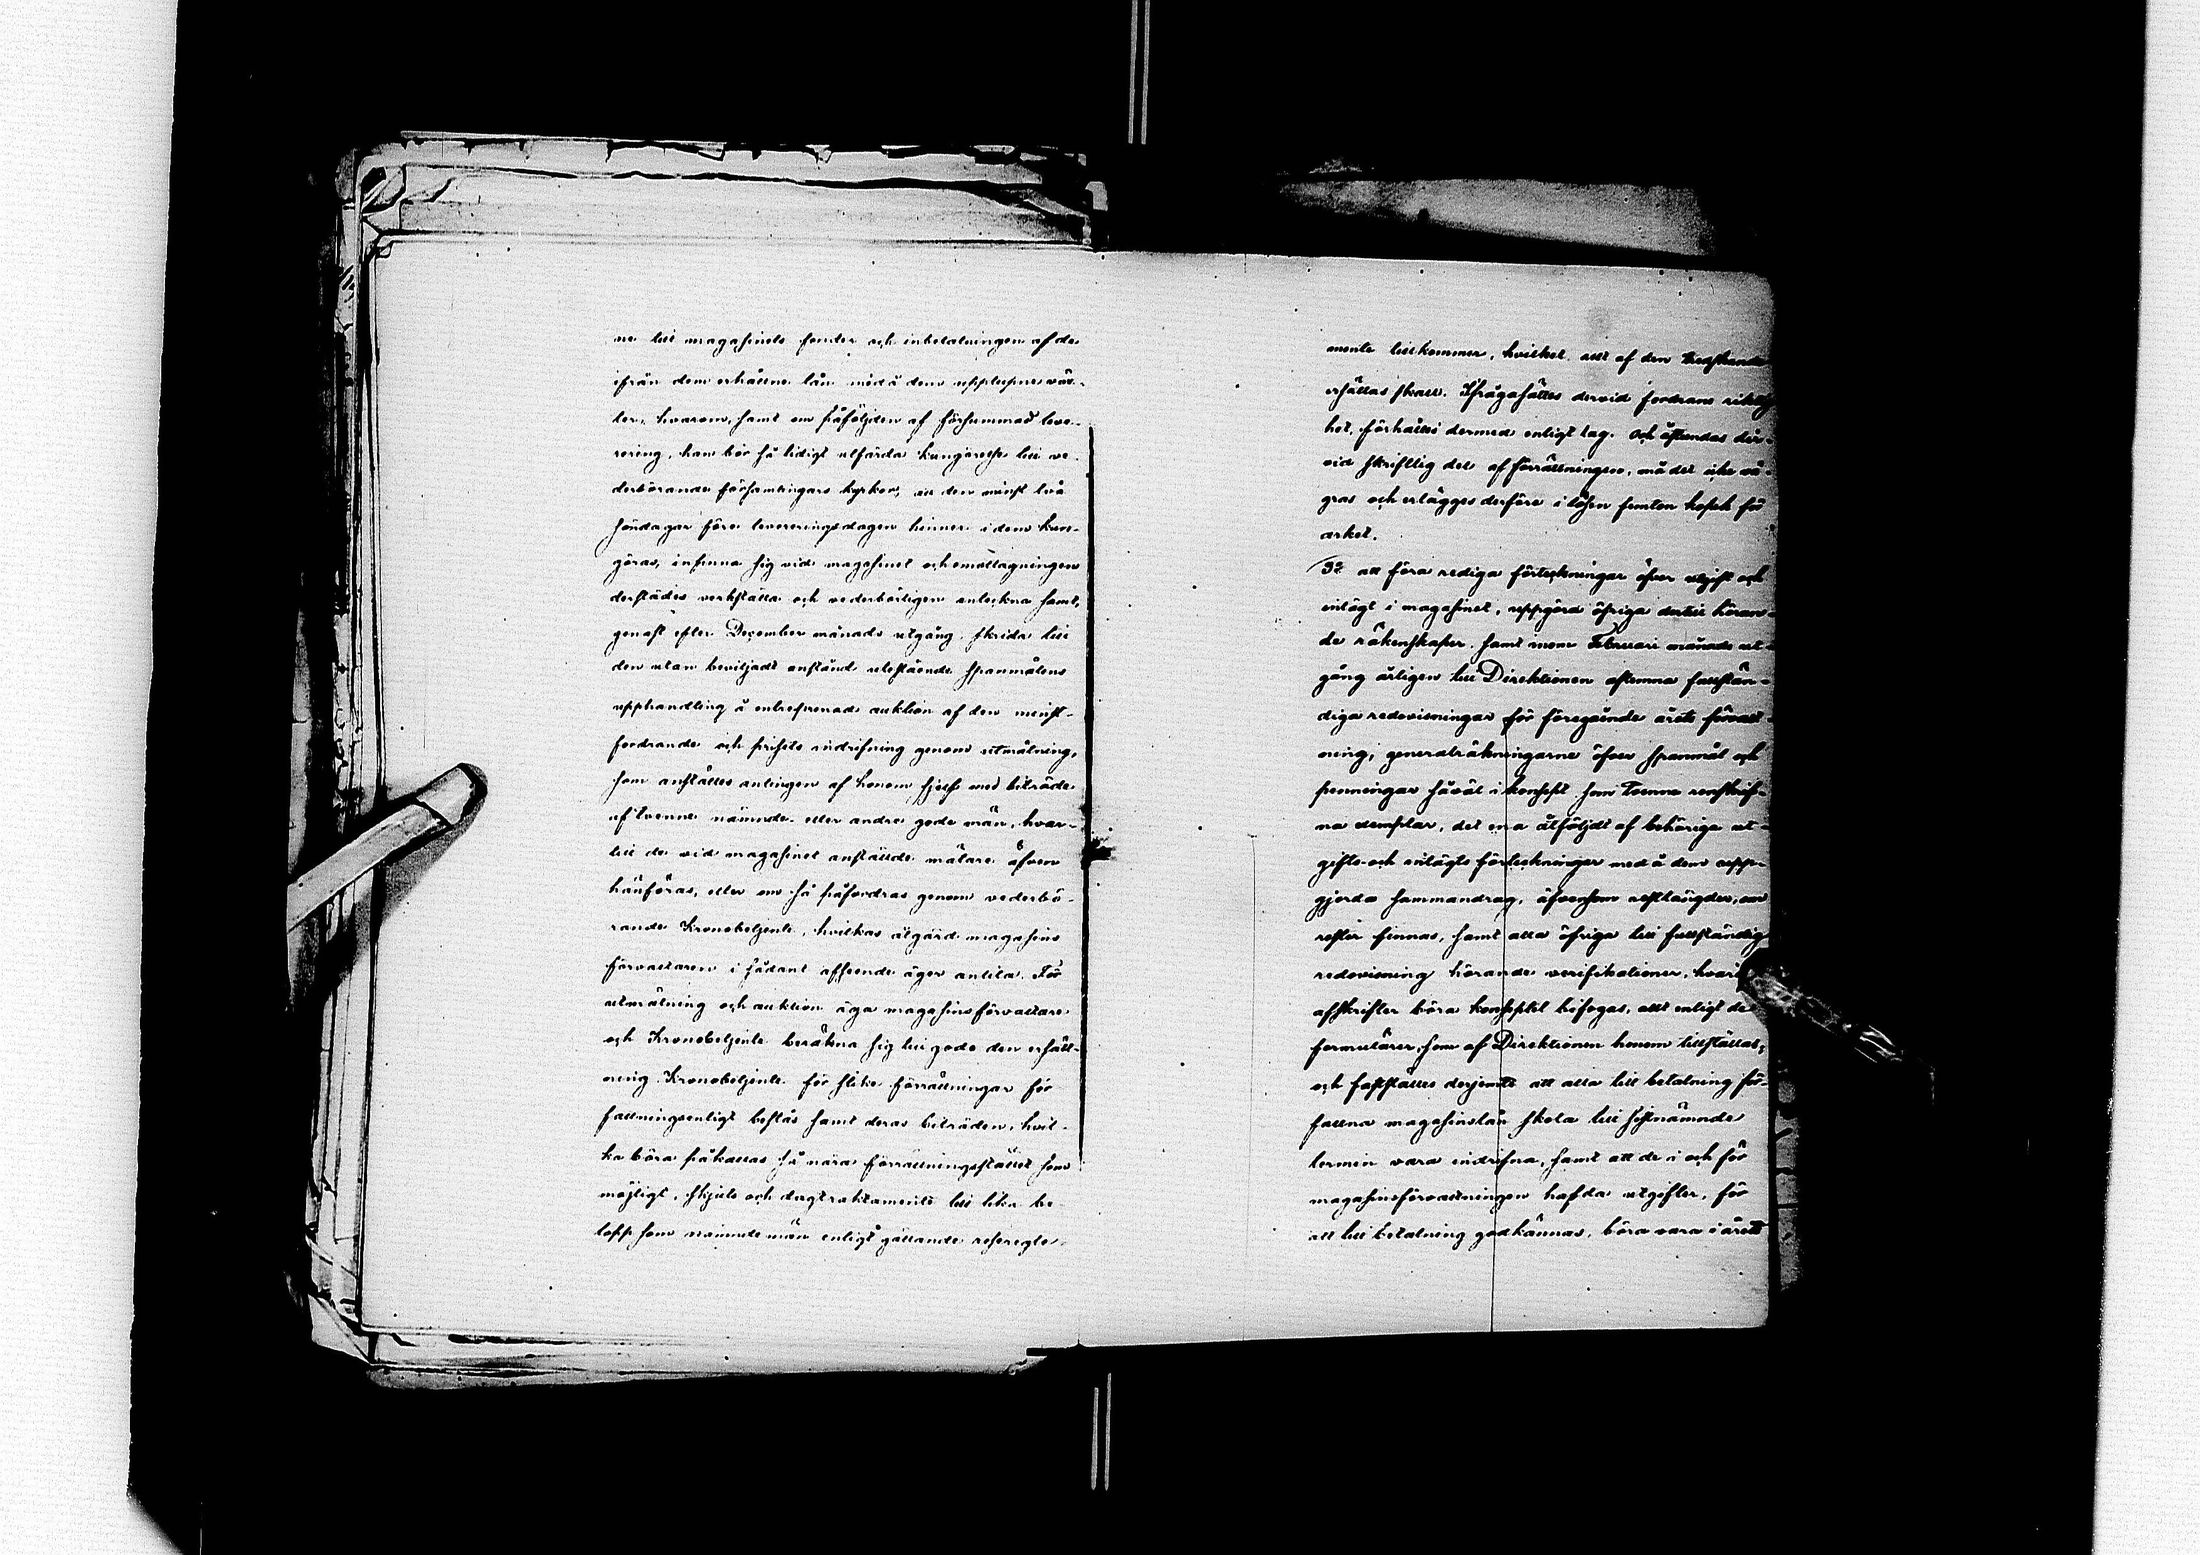 ne till magasinets fonder och inbetalningen af de
ifrån dem erhållne lån med å dem upplupne rän-
tor, hvarom, samt om påföljden af försummad leve-
rering, han bör så tidigt utfärda kungörelse till ve-
derbörande församlingars kyrkor, att den minst två
söndagar före levereringsdagen hinner i dem kun-
göras, infinna sig vid magasinet och emottagningen
derstädes verkställa och vederbörligen anteckna samt,
genast efter December månads utgång, skrida till
den utan beviljadt anstånd utestående spanmålens
upphandling å entreprenad auktion af den minst-
fordrande och prisets indrifning genom utmätning,
som anställes antingen af honom sjelf med biträde
af tvenne nämnde- eller andre gode män, hvar-
till de vid magasinet anställde mätare äfven
hänföras, eller om så påfordras genom vederbö-
rande Kronobetjente, hvilkas åtgärd magasins
förvaltaren i sådant afseende äger anlita. För
utmätning och auktion äga magasinsförvaltare
och Kronobetjente beräkna sig till godo den ersätt-
ning Kronobetjente för slika förrättningar för
fattningsenligt bestås samt deras biträden, hvil-
ka böra påkallas så nära förrättningsstället som
möjligt, skjuts och dagtraktamente till lika be-
lopp som nämnde män enligt gällande resereg­le-
mente tillkommer, hvilket allt af den tredskande
ersättas skall. Ifrågasättes dervid fordrans riktig
het, förhålles dermed enligt lag. Och åstundas der-
vid skriftlig del af förrättningen, må det icke vä-
gras och erlägges derföre i lösen femton kopek för
arket.
3o att föra rediga förteckningar öfver utgift och
inlägt i magasinet, uppgöra öfriga dertill höran-
de räkenskaper samt inom Februari månads ut-
gång årligen till Direktionen aflemna fullstän-
diga redovisningar för föregående årets förvalt-
ning, generalräkningarne öfver spanmål och
penningar såväl i koncept som tvenne renskrif-
na exemplar, det ena åtföljdt af behöriga ut-
gifts- och inlägts förteckningar med å dem upp-
gjorda sammandrag, äfvensom restlängder, om
rester finnas, samt alla öfriga till fullständig
redovisning hörande verifikationer, hvaraf
afskrifter böra konceptet bifogas, allt enligt de
formulärer som af Direktionen honom tillställas;
och fastställes derjemte att alla till betalning för-
fallna magasinslån skola till sistnämnde
termin vara indrifna, samt att de i och för
magasinsförvaltningen hafda utgifter, för
att till betalning godkännas, böra vara i årets